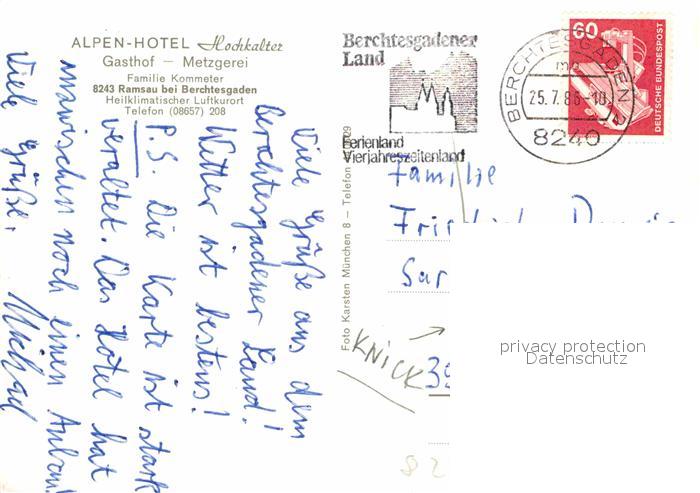 ALPEN-HOTEL Hochkalter
Gasthof — Metzgerei
Familie Kommeter
8243 Ramsau bei Berchtesgaden
Heilklimatischer Luftkurort
Telefon (08657) 208
Viele Grüße aus dem
Berchtesgadener Land!
Wetter ist bestens!
P.S. Die Karte ist stark
veraltet. Das Hotel hat
inzwischen noch einen Anbau!
Viele Grüße,
Michael
Foto Karsten München 8 — Telefon
Berchtesgadener
Land
Ferienland
Vierjahreszeitenland
BERCHTESGADEN
mn
25.7.86-10
8240
60
DEUTSCHE BUNDESPOST
Familie
KNICK
82
privacy protection
Datenschutz